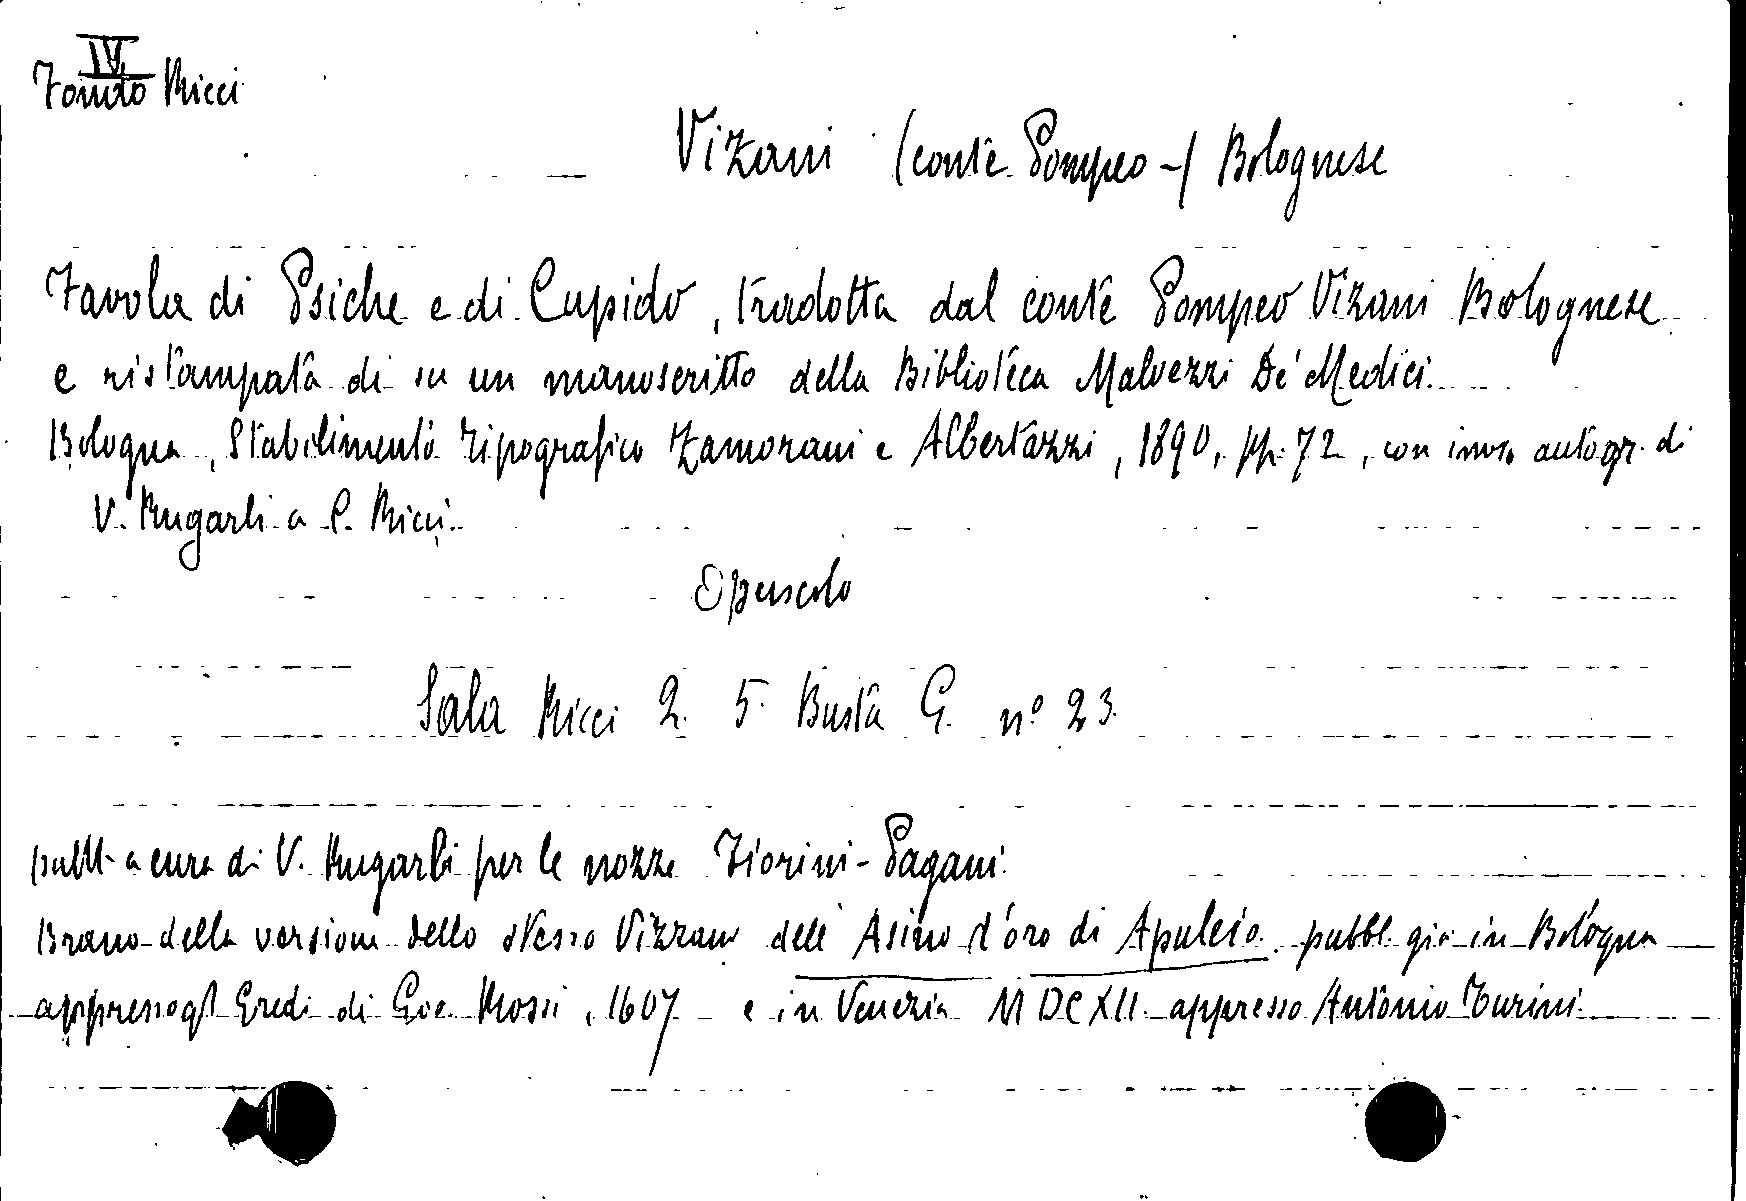 IV
Fondo Ricci
Vizani (conte Pompeo -) Bolognese
Favola di Psiche e di Cupido, tradotta dal conte Pompeo Vizani Bolognese
e ristampata di su un manoscritto della Biblioteca Malvezzi De' Medici.
Bologna, Stabilimento Tipografico Zamorani e Albertazzi, 1890, pp. 72, con invio autogr. di
V. Rugarli a C. Ricci.
Opuscolo
Sala Ricci 2. 5. Busta G. n° 23.
pubbl. a cura di V. Rugarli per le nozze Fiorini-Pagani.
Brano della versione dello stesso Vizzani dell'Asino d'oro di Apuleio. pubbl. già in Bologna
appresso gl' Eredi di Gio. Rossi, 1607 e in Venezia MDCXII. appresso Antonio Turini.